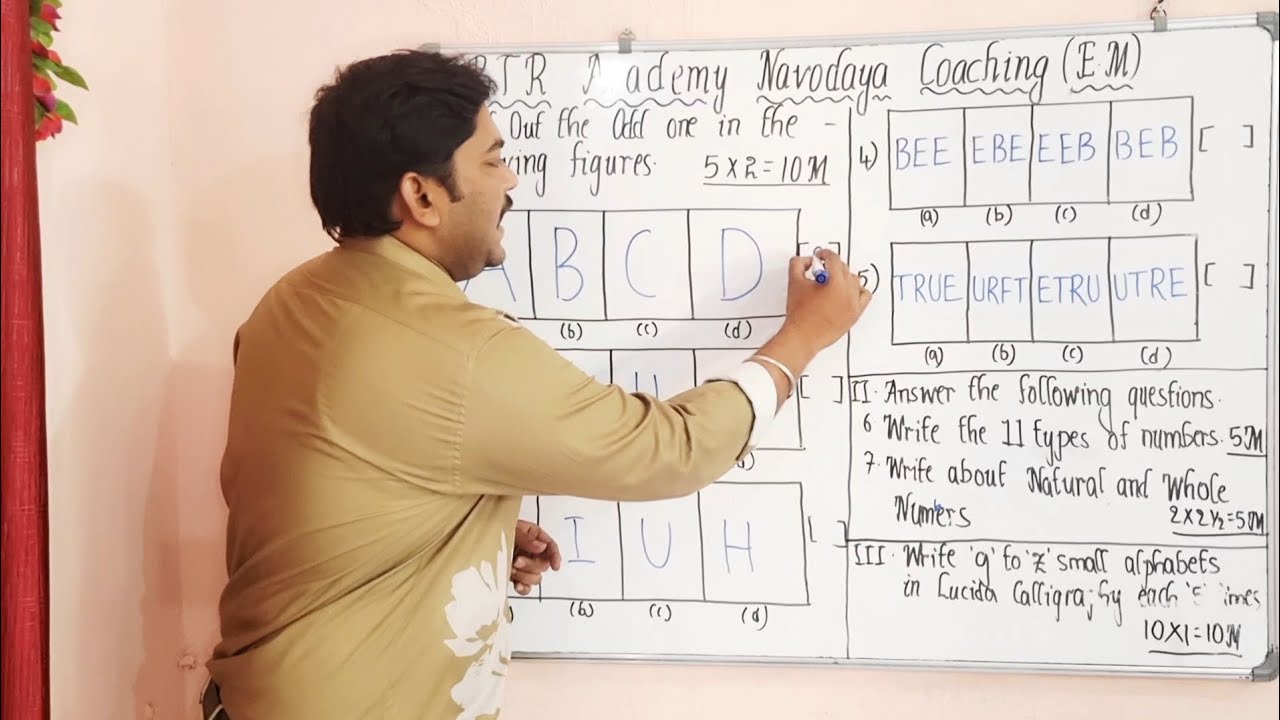 RTR Academy Navodaya Coaching (E.M)
Out the Odd one in the -
figures. 5 X 2 = 10 M
A B C D
(b) (c) (d)
U [ ]
I U H [ ]
(b) (c) (d)
4) BEE EBE EEB BEB [ ]
(a) (b) (c) (d)
5) TRUE URFT ETRU UTRE [ ]
(a) (b) (c) (d)
II. Answer the following questions.
6 Write the 11 types of numbers. 5M
7. Write about Natural and Whole
Numbers 2 X 2 ½ = 5M
III. Write 'g' to 'z' small alphabets
in Lucida each
10 X 1 = 10 M